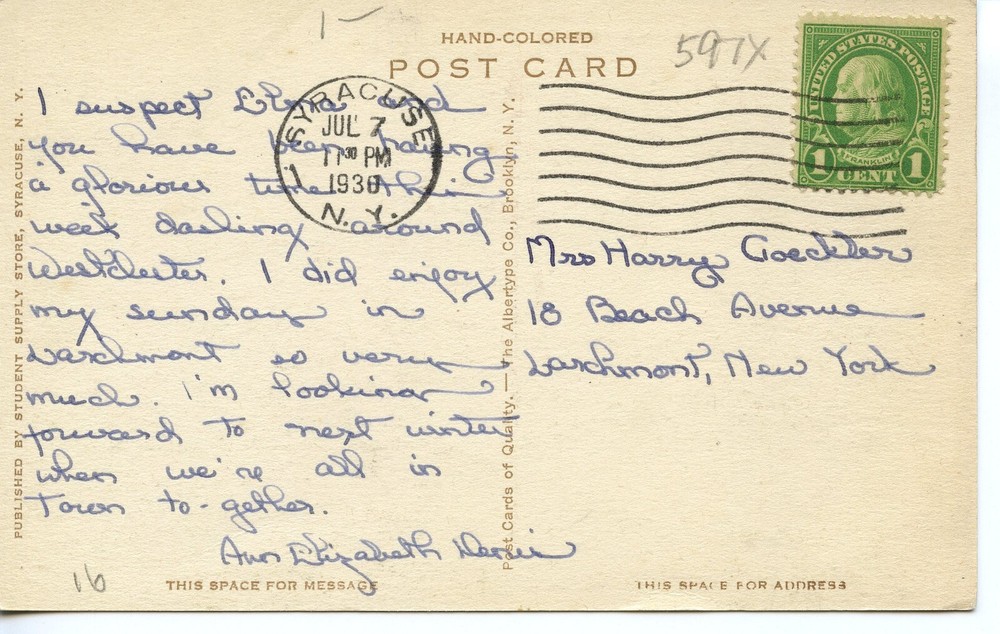 1-
HAND-COLORED
POST CARD
597X
UNITED STATES POSTAGE
FRANKLIN
1 CENT 1
SYRACUSE
1
JUL 7
11 30 PM
1930
N.Y.
I suspect and
you have been having
a glorious time this
week dashing around
Westchester. I did enjoy
my sunday in
Larchmont so very
much. I'm looking
forward to next winter
when we're all in
Town to-gether.
Ann Elizabeth
Mrs Harry
18 Beach Avenue
Larchmont, New York
PUBLISHED BY STUDENT SUPPLY STORE, SYRACUSE, N. Y.
Post Cards of Quality.—The Albertype Co., Brooklyn, N. Y.
16
THIS SPACE FOR MESSAGE
THIS SPACE FOR ADDRESS